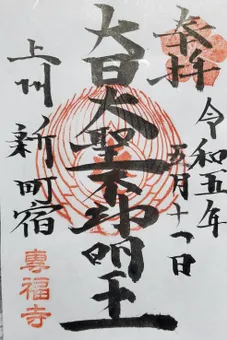 奉拝
令和五年
五月十一日
大日大聖不動明王
上州
新町宿
専福寺